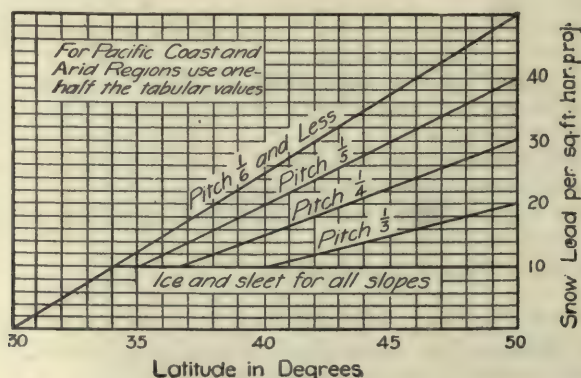 For Pacific Coast and
Arid Regions use one-
half the tabular values
Pitch 1/6 and Less
Pitch 1/5
Pitch 1/4
Pitch 1/3
Ice and sleet for all slopes
40
30
20
10
Snow Load per sq. ft. hor. proj.
30 35 40 45 50
Latitude in Degrees